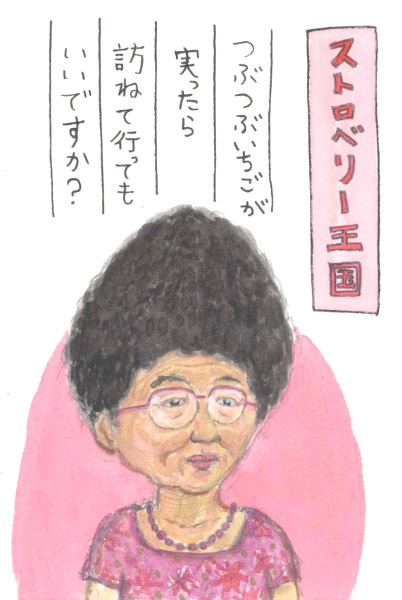 ストロベリー王国
つぶつぶいちごが
実ったら
訪ねて行っても
いいですか？